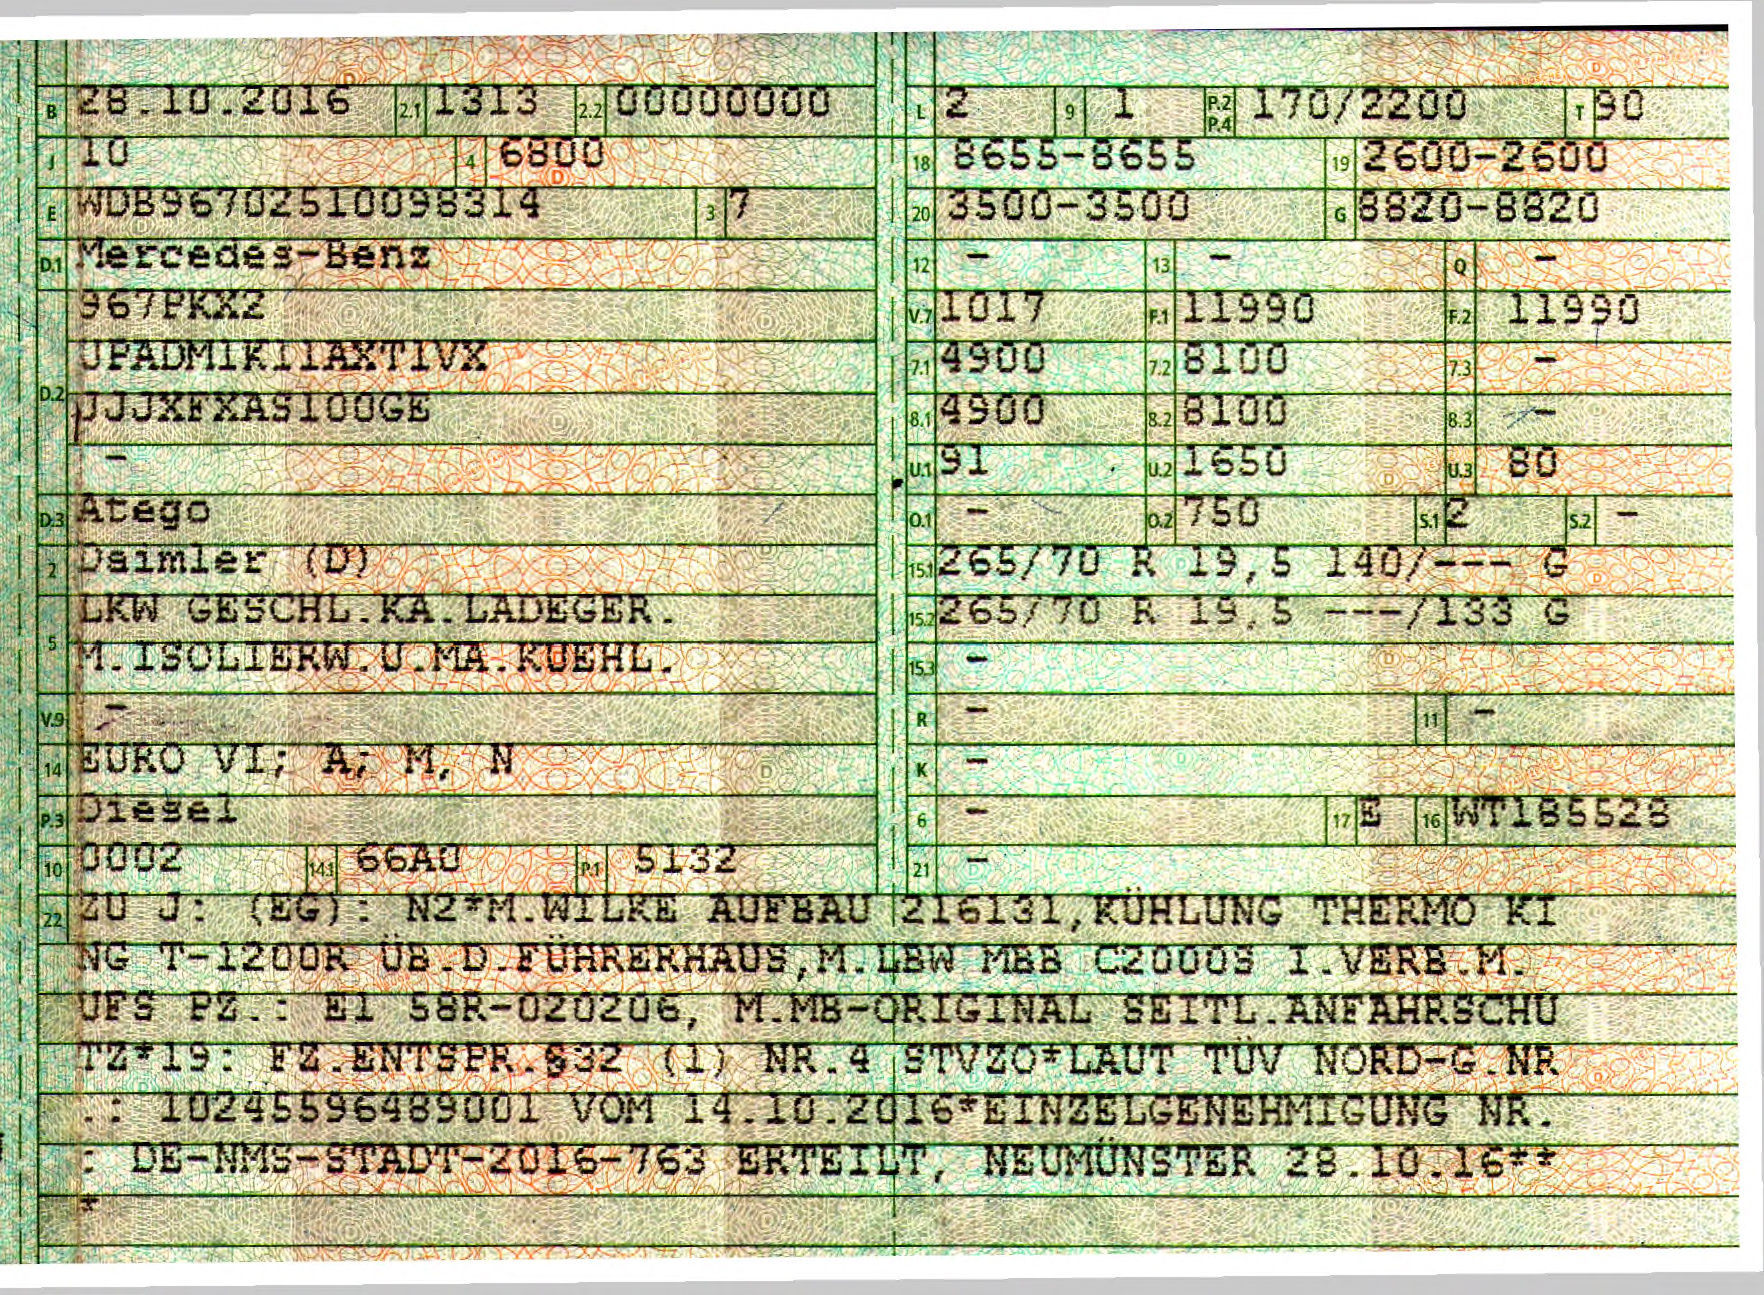 B 28.10.2016 2.1 1313 2.2 00000000
J 10 4 6800
E WDB96702510098314 3 7
D.1 Mercedes-Benz
967PKX2
D.2 UPADM1K11AXT1VX
JJJXFXAS100GE
-
D.3 Atego
2 Daimler (D)
5 LKW GESCHL.KA.LADEGER.
M.ISOLIERW.U.MA.KUEHL.
V.9 -
14 EURO VI; A; M, N
P.3 Diesel
10 0002 14.1 66A0 P.1 5132
L 2 9 1 P.2 P.4 170/2200 T 90
18 8655-8655 19 2600-2600
20 3500-3500 G 8820-8820
12 - 13 - Q -
V.7 1017 F.1 11990 F.2 11990
7.1 4900 7.2 8100 7.3 -
8.1 4900 8.2 8100 8.3 -
U.1 91 U.2 1650 U.3 80
O.1 - O.2 750 S.1 2 S.2 -
15.1 265/70 R 19,5 140/--- G
15.2 265/70 R 19,5 ---/133 G
15.3 -
R - 11 -
K -
6 - 17 E 16 WT185528
21 -
22 ZU J: (EG): N2*M.WILKE AUFBAU 216131,KÜHLUNG THERMO KI
NG T-1200R ÜB.D.FÜHRERHAUS,M.LBW MBB C2000S I.VERB.M.
UFS PZ.: E1 58R-020206, M.MB-ORIGINAL SEITL.ANFAHRSCHU
TZ*19: FZ.ENTSPR.§32 (1) NR.4 STVZO*LAUT TÜV NORD-G.NR
.: 10245596489001 VOM 14.10.2016*EINZELGENEHMIGUNG NR.
: DE-NMS-STADT-2016-763 ERTEILT, NEUMÜNSTER 28.10.16**
*